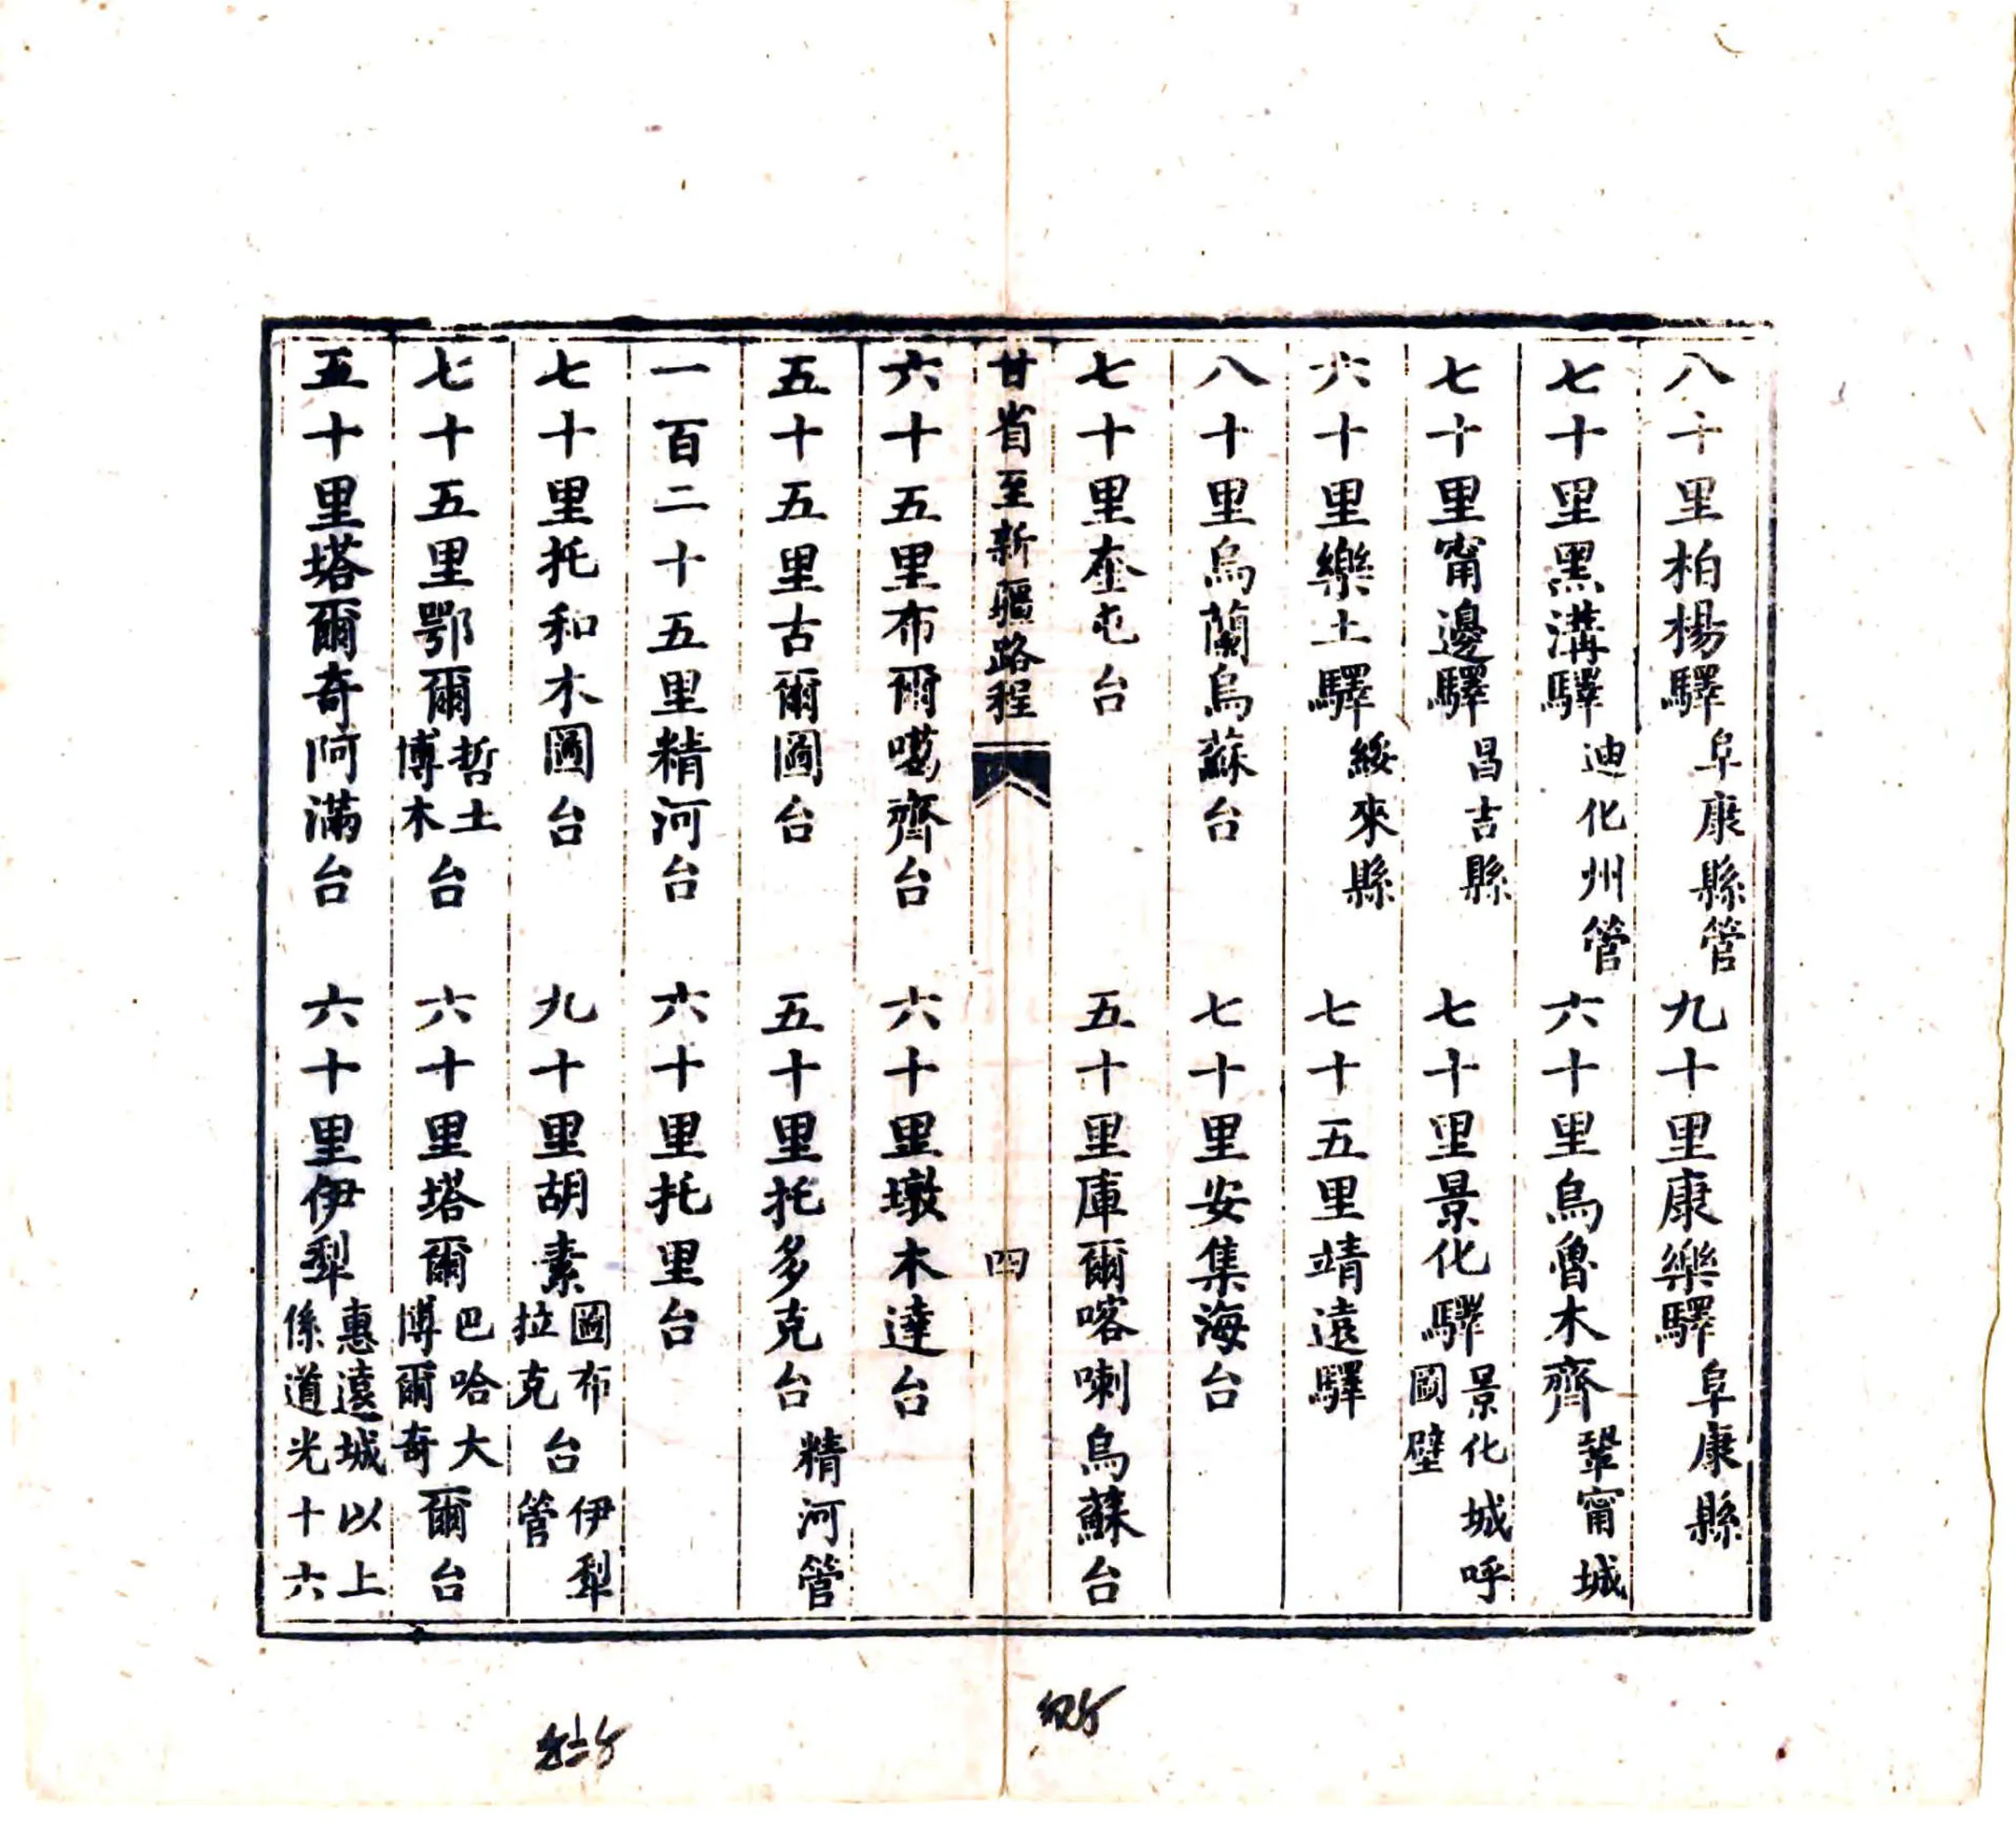 八十里柏楊驛阜康縣管 九十里康樂驛阜康縣
七十里黑溝驛迪化州管 六十里烏魯木齊鞏甯城
七十里甯邊驛昌吉縣 七十里景化驛景化城呼圖壁
六十里樂土驛綏來縣 七十五里靖遠驛
八十里烏蘭烏蘇台 七十里安集海台
七十里奎屯台 五十里庫爾喀喇烏蘇台
甘省至新疆路程 四
六十五里布爾噶齊台 六十里墩木達台
五十五里古爾圖台 五十里托多克台精河管
一百二十五里精河台 六十里托里台
七十里托和木圖台 九十里胡素圖布拉克台伊犁管
七十五里鄂爾哲土博木台 六十里塔爾巴哈大博爾奇爾台
五十里塔爾奇阿滿台 六十里伊犁惠遠城以上係道光十六